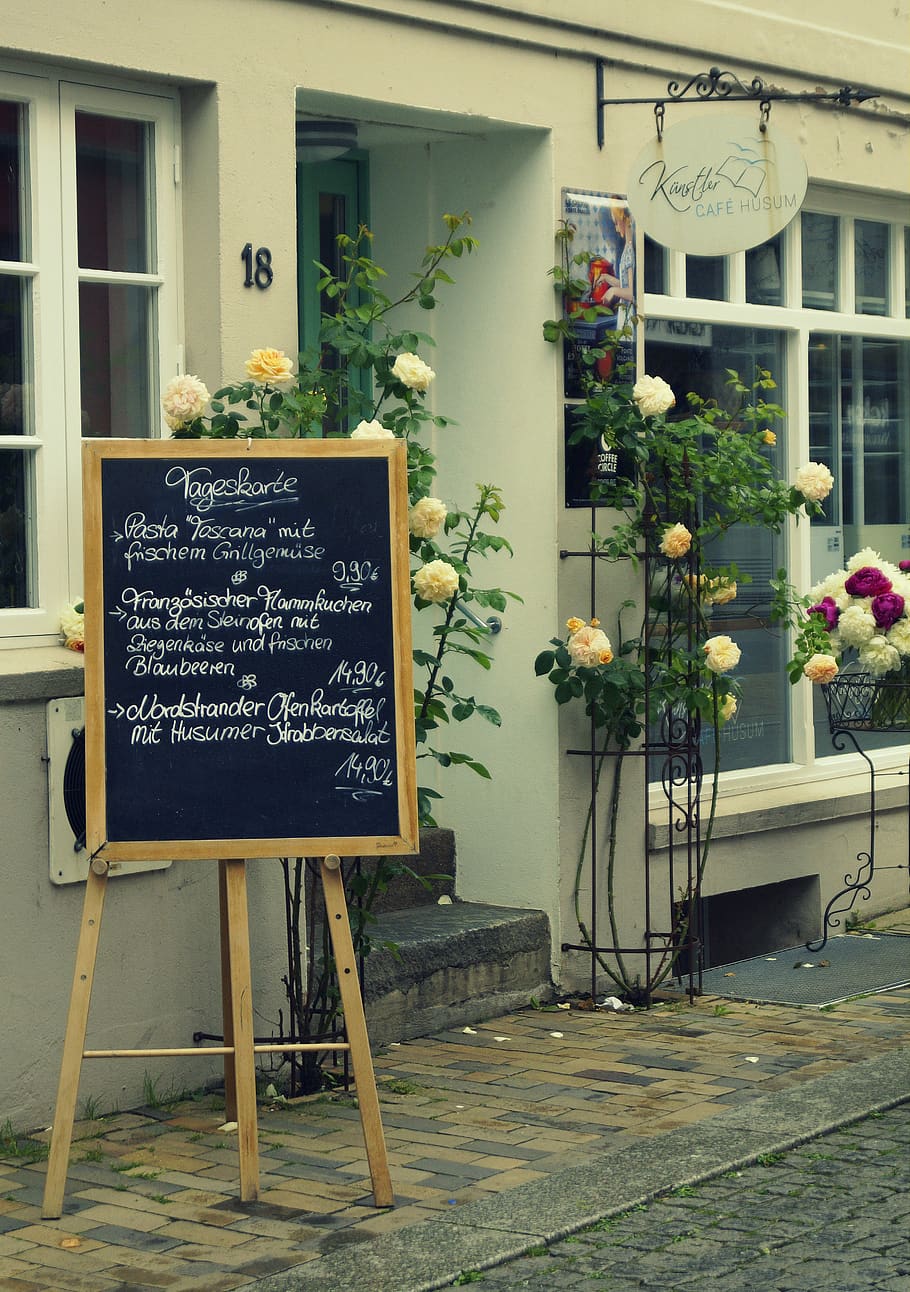 Künstler
CAFÉ HUSUM
18
Tageskarte
→Pasta "Toscana" mit
frischem Grillgemüse
9,90€
→Französischer Flammkuchen
aus dem Steinofen mit
Ziegenkäse und frischen
Blaubeeren
14,90€
→Nordstrander Ofenkartoffel
mit Husumer Krabbensalat
14,90€
COFFEE
CIRCLE
CAFÉ HUSUM